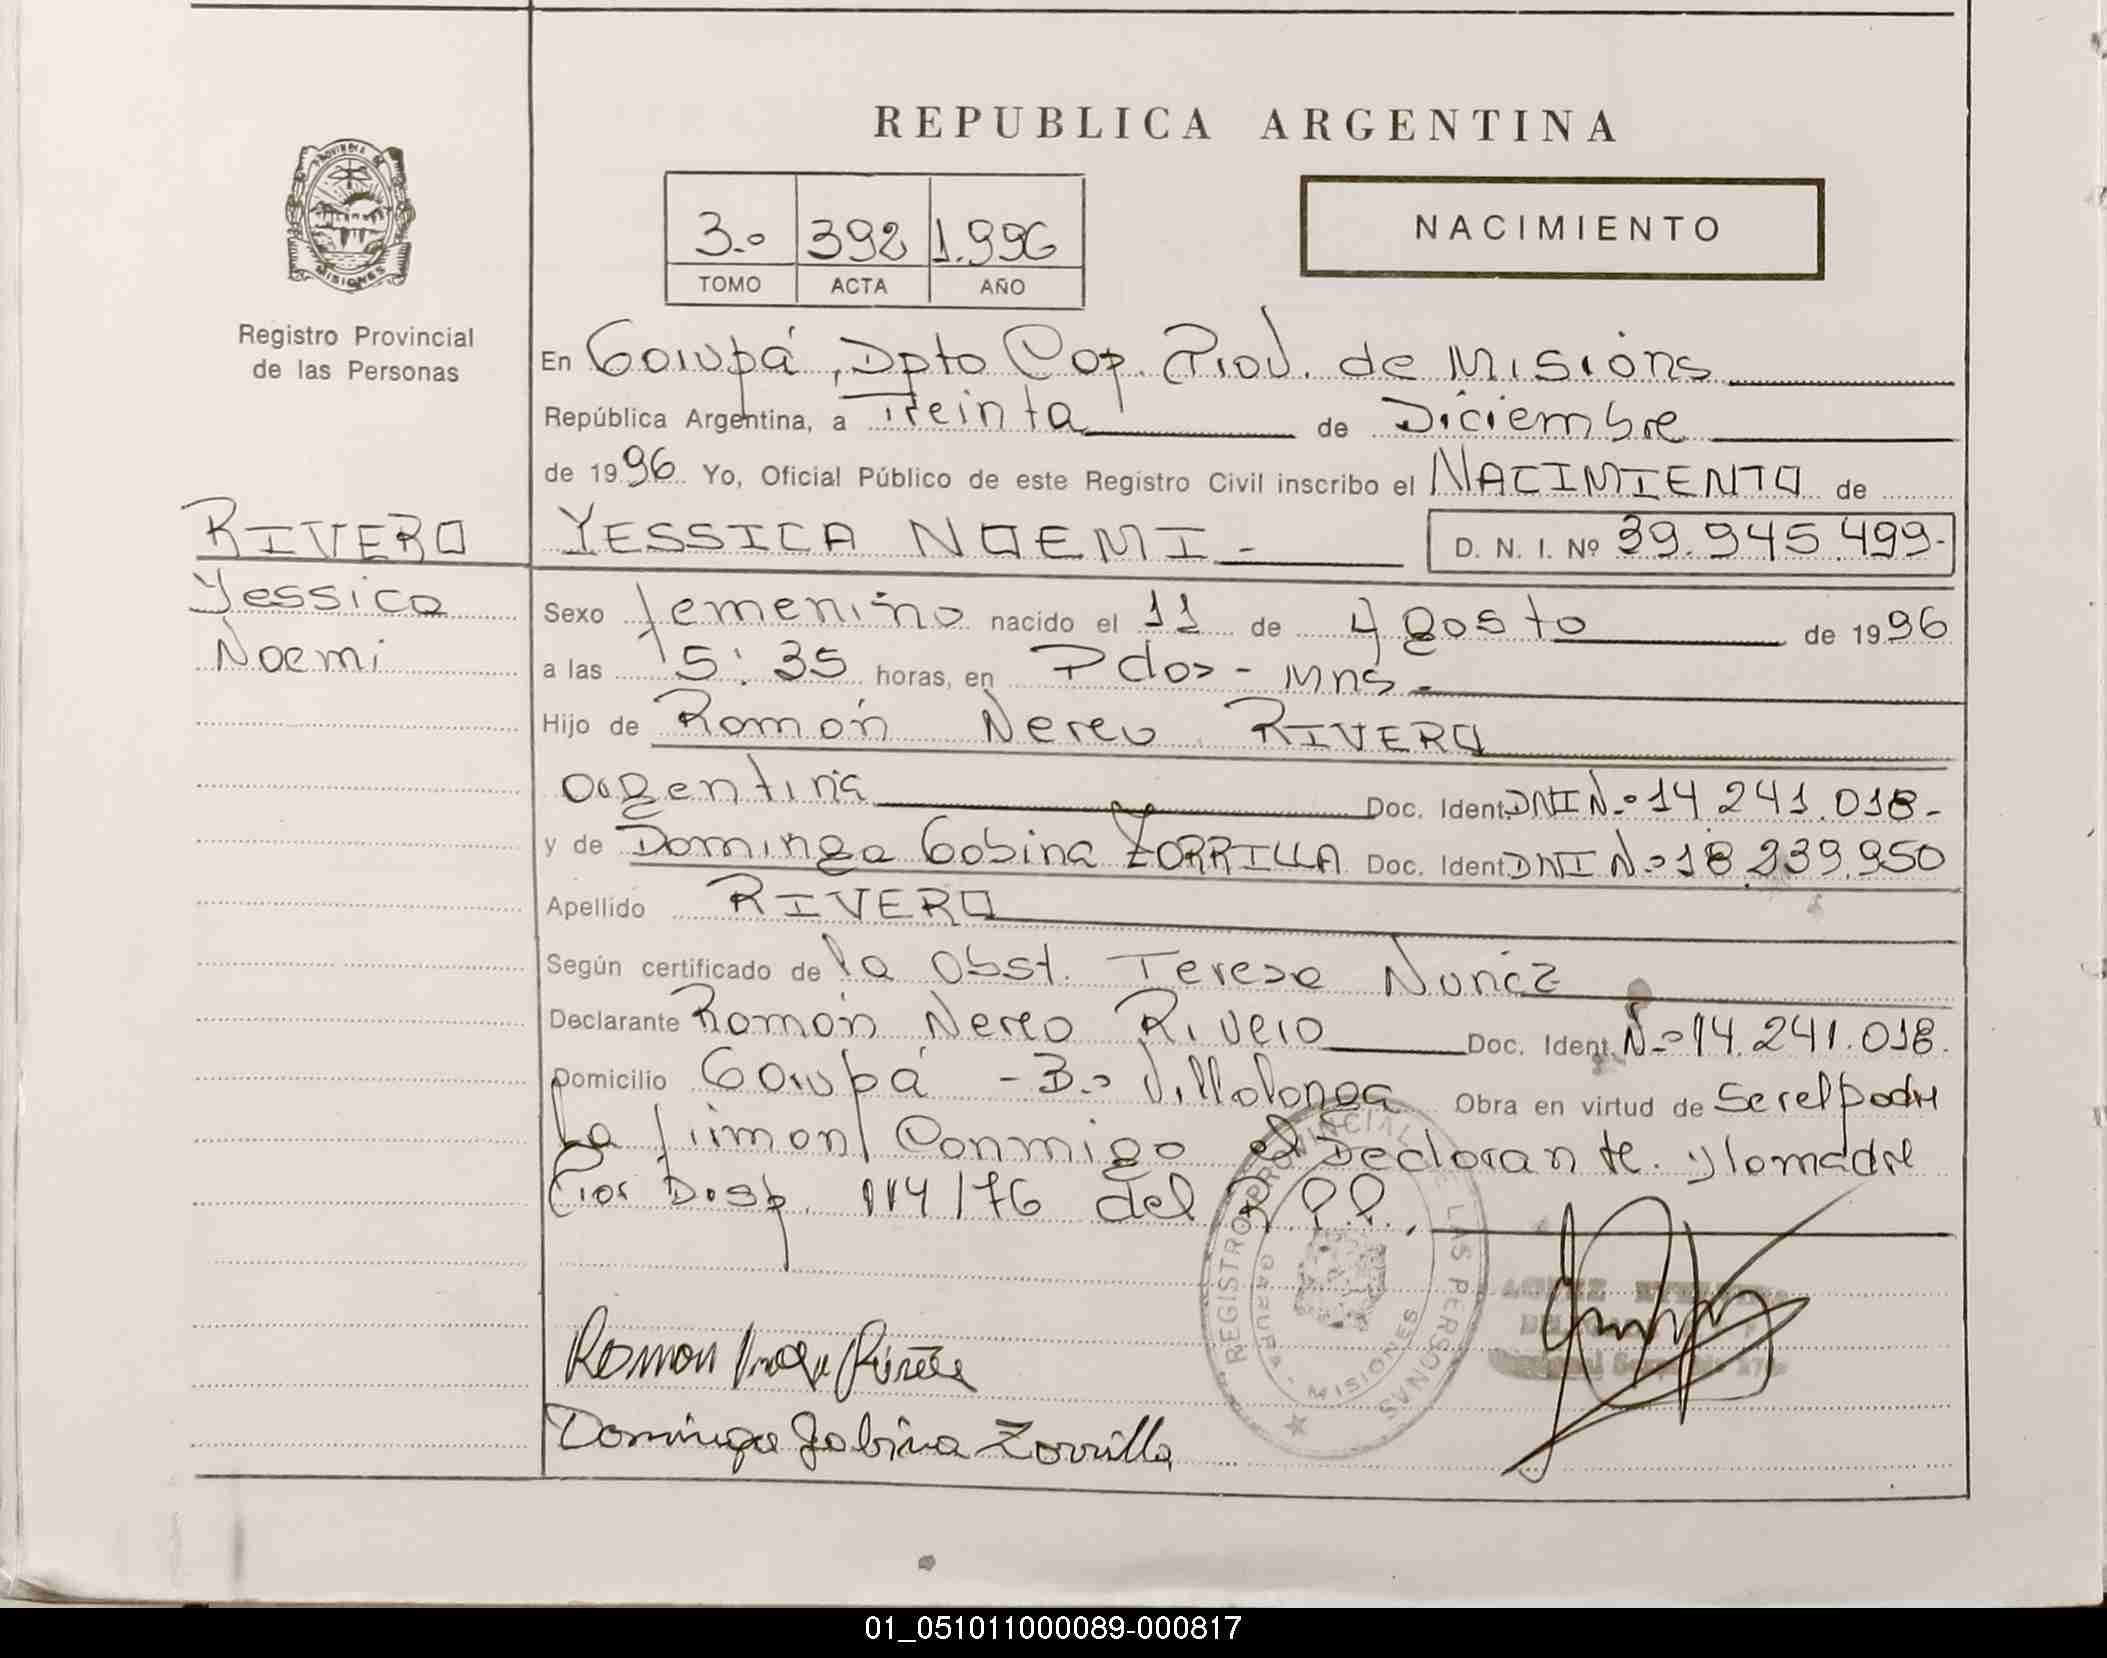 REPUBLICA ARGENTINA
PROVINCIA DE
MISIONES
Registro Provincial
de las Personas
3.º 392 1.996
TOMO ACTA AÑO
NACIMIENTO
En Garupá, Dpto Cap. Prov. de Misions
República Argentina, a Treinta de Diciembre
de 1996 Yo, Oficial Público de este Registro Civil inscribo el NACIMIENTO de
RIVERO
Yessica
Noemi
YESSICA NOEMI - D. N. I. Nº 39.945.499-
Sexo femenino nacido el 11 de Agosto de 1996
a las 15:35 horas, en Pdas - Mns.-
Hijo de Ramón Nereo RIVERO
argentina Doc. Ident. DNI N.º 14.241.018-
y de Dominga Gabina ZORRILLA Doc. Ident. DNI N.º 18.239.950
Apellido RIVERO
Según certificado de la Obst. Teresa Nuñez
Declarante Ramón Nereo Rivero Doc. Ident. N.º 14.241.018.
Domicilio Garupá - B.º Villalonga Obra en virtud de Ser el padre
La firman Conmigo el Declarante. y la madre
Por Disp. 114/76 del R.P.P.
REGISTRO PROVINCIAL DE LAS PERSONAS
GARUPA - MISIONES
Ramon
Dominga Gabina Zorrilla
01_051011000089-000817